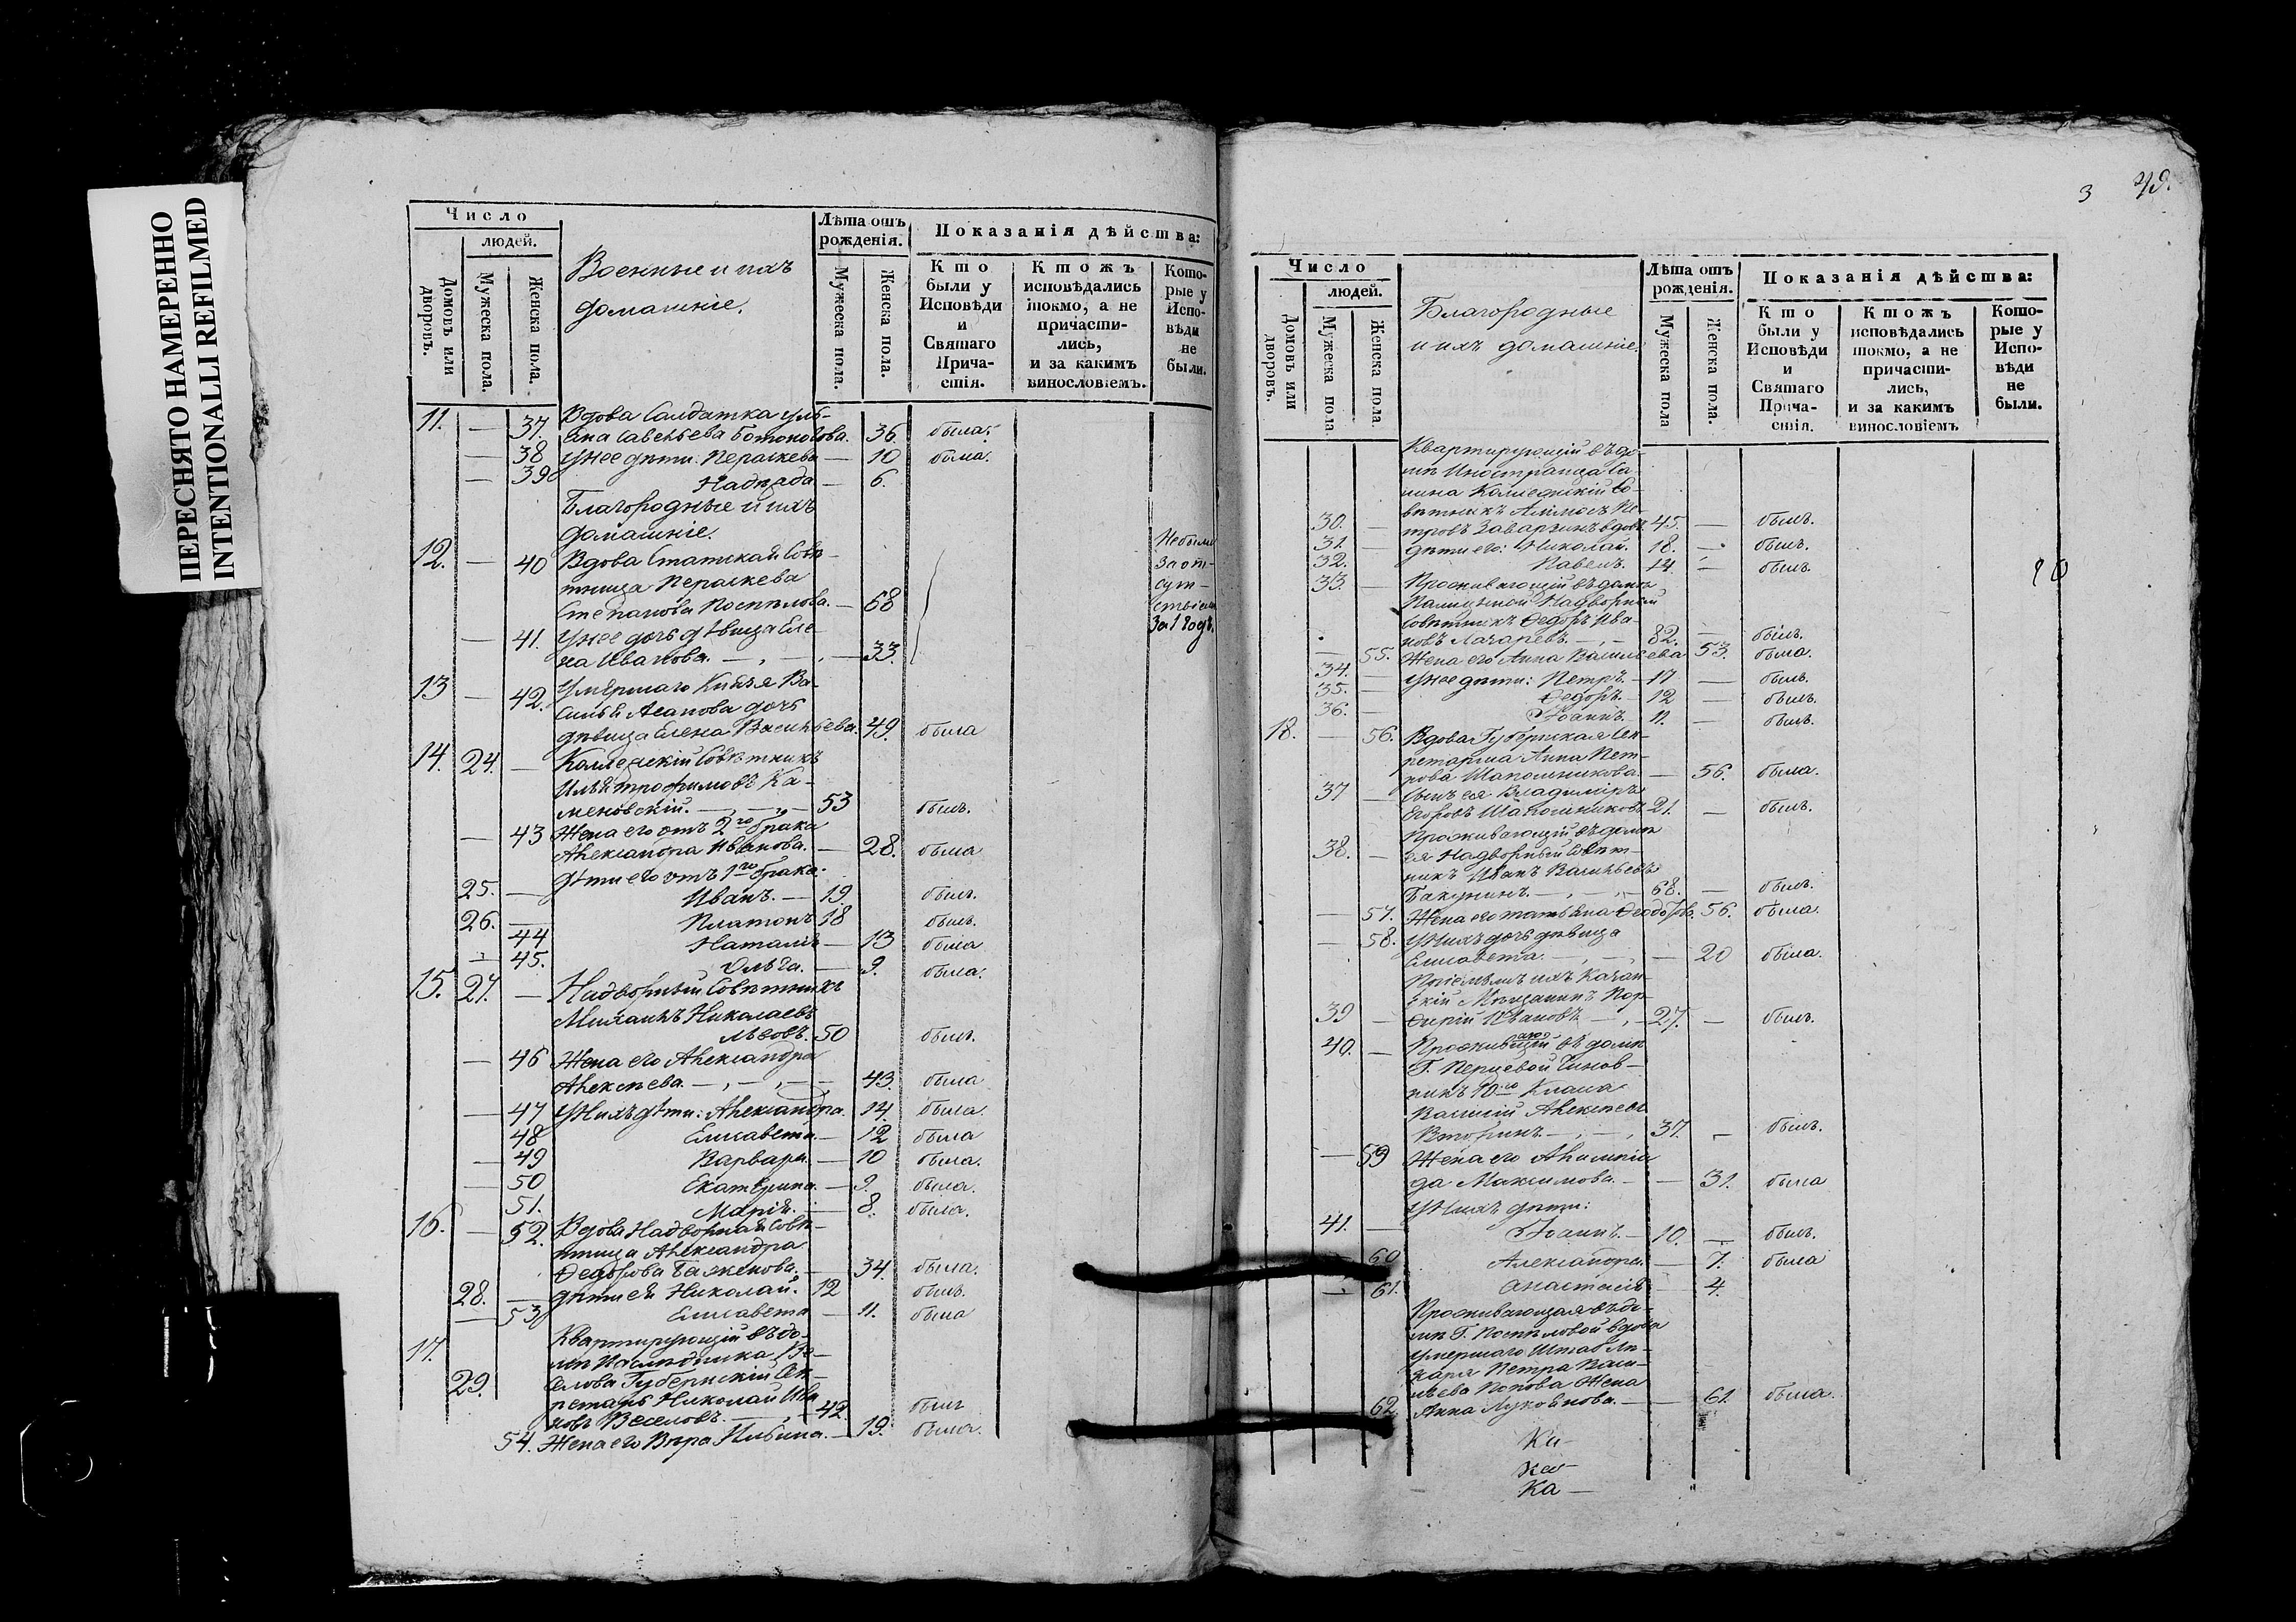 ПЕРЕСНЯТО НАМЕРЕННО
INTENTIONALLI REFILMED
Число
людей.
Домовъ или дворовъ.
Мужеска пола.
Женска пола.
Военные и ихъ
домашніе.
Лѣта отъ
рожденія.
Мужеска пола.
Женска пола.
Показанія дѣйства:
Кто
были у
Исповѣди
и
Святаго
Прича-
стія.
Ктожъ
исповѣдались
токмо, а не
причасти-
лись,
и за какимъ
винословіемъ.
Кото-
рые у
Испо-
вѣди
не
были.
11. — 37. Вдова Салдатка Уль-
яна Савельева 36. была.
— 38 У нее дѣти: Параскева — 10 была.
— 39 Надежда — 6.
Благородные и ихъ
домашніе.
12. — 40 Вдова Статская Совѣ-
тница Параскева
Степанова Поспѣлова. — 68
Небыли
за от-
сут-
ствіем
за 1 годъ.
— 41. У нее дочь дѣвица Еле-
на Иванова. — 33.
13 — 42. Умершаго Князя Ва-
силья Асанова дочь
дѣвица Елена Васильева. 49. была
14. 24. — Коллежскій Совѣтникъ
Илья Трофимовъ Ка-
меновскій. — 53 былъ.
— 43 Жена его отъ 2го брака
Александра Иванова. — 28. была
дѣти его отъ 1го брака:
25. — Иванъ. — 19. былъ.
26. — Платонъ 18 былъ.
44 Наталія — 13 была
45. Ольга. — 9. была.
15. 27. — Надворный Совѣтникъ
Михаилъ Николаевъ
Львовъ. 50 былъ.
— 46 Жена его Александра
Алексѣева. — 43. была
— 47 У нихъ дѣти: Александра. 14 была.
48 Елисавета. — 12 была
— 49 Варвара. — 10 была.
— 50 Екатерина. — 9. была.
51. Марія. — 8. была.
16. — 52. Вдова Надворная Совѣ-
тница Александра
Федорова Баженова. — 34. была.
28. — дѣти ея Николай. 12 былъ.
— 53 Елисавета — 11. была
17. Квартирующій въ до-
мѣ Наслѣдника Ве-
29. селова Губернскій Сек-
ретарь Николай Ива
новъ Веселовъ. — 42. былъ
54. Жена его Вѣра Ильина. — 19. была.
3 49.
Число
людей.
Домовъ или дворовъ.
Мужеска пола.
Женска пола
Благородные
и ихъ домашніе.
Лѣта отъ
рожденія.
Мужеска пола
Женска пола.
Показанія дѣйства:
Кто
были у
Исповѣди
и
Святаго
Прича-
стія.
Ктожъ
исповѣдались
токмо, а не
причасти-
лись,
и за какимъ
винословіемъ
Кото-
рые у
Испо-
вѣди
не
были.
Квартирующій въ до-
мѣ Иностранца Са-
нина Коллежскій Со-
вѣтникъ Пе-
30. — тровъ вдов. 45. — былъ.
31. — дѣти его: Николай. 18. — былъ.
32. Павелъ. 14. — былъ.
33. — Проживающій въ домѣ
Палицыной Надворный
Совѣтникъ Федоръ Ива-
новъ Лазаревъ. — 82. — былъ.
— 55. Жена его Анна Васильева 53. была.
34. — У нее дѣти: Петръ. — 17 — былъ.
35. — Федоръ. — 12 — былъ.
36. — Іоаннъ. 11. — былъ.
18. — 56. Вдова Губернская Сек-
ретарша Анна Пет-
рова Шапошникова. — 56. была.
37 — Сынъ ея Владиміръ
Егоровъ Шапошниковъ 21. — былъ.
Проживающій въ домѣ
38. — ея Надворный Совѣт-
никъ Иванъ Васильевъ
Бакунинъ. — 68. — былъ.
— 57. Жена его Татьяна Феодоров. 56. была.
— 58. У нихъ дочь дѣвица
Елисавета. — 20 была.
Пріемышъ ихъ Казан-
скій Мѣщанинъ Пор-
39 — фирій Ивановъ. — 27. — былъ.
40. — Проживающій въ домѣ
Г. Перцевой Чинов-
никъ 10го Класса
Василій Алексѣевъ
Вторинъ. — 37. — былъ.
— 59 Жена его Алимпіа
да Максимова. — 31. была
У нихъ дѣти:
41. — Іоаннъ. — 10. — былъ.
60 Александра. — 7. была
61. Анастасія — 4.
Проживающая въ до-
мѣ Г. Поспѣловой вдова
умершаго Штабъ Лѣ-
каря Петра Васи-
льева Попова Жена
62. Анна Луковнова. — 61. была.
Ка-
Ка-
Ка-